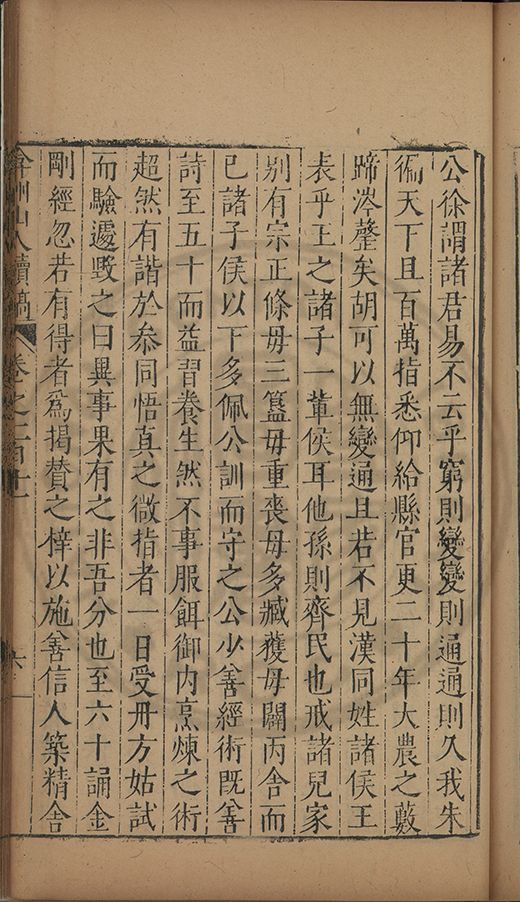 公徐謂諸君易不云乎窮則變變則通通則久我朱
徧天下且百萬指悉仰給縣官更二十年大農之藪
蹄涔罄矣胡可以無變通且若不見漢同姓諸侯王
表乎王之諸子一輩侯耳他孫則齊民也戒諸兒家
别有宗正條毋三簋毋重喪毋多臧獲毋闢丙舍而
已諸子侯以下多佩公訓而守之公少善經術既善
詩至五十而益習養生然不事服餌御内烹煉之術
超然有諧於叅同悟真之微指者一日受冊方姑試
而驗遽毀之曰異事果有之非吾分也至六十誦金
剛經忽若有得者爲揭贊之梓以施善信人築精舍
弇州山人續稿 卷之一百十一 六